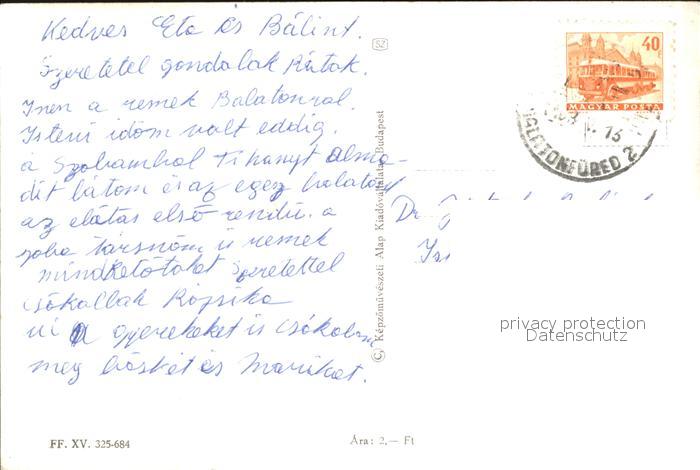 Kedves Eta és Bálint.
Szeretetel gondolak Rátok.
Inen a remek Balatonrol.
Isteni idöm volt eddig.
a Szobambol Tihanyt Almá-
dit látom és az egez balaton
az elátás elsö rendü. a
szoba társnöm is remek
mindketötöket szeretettel
csókollak Rózsika
ui a gyerekeket is csókolom
meg és Marikat.
SZ
© Képzőművészeti Alap Kiadóvállalata, Budapest
40 f
MAGYAR POSTA
BALATONFÜRED 2
13
Dr.
privacy protection
Datenschutz
FF. XV. 325-684
Ára: 2,— Ft